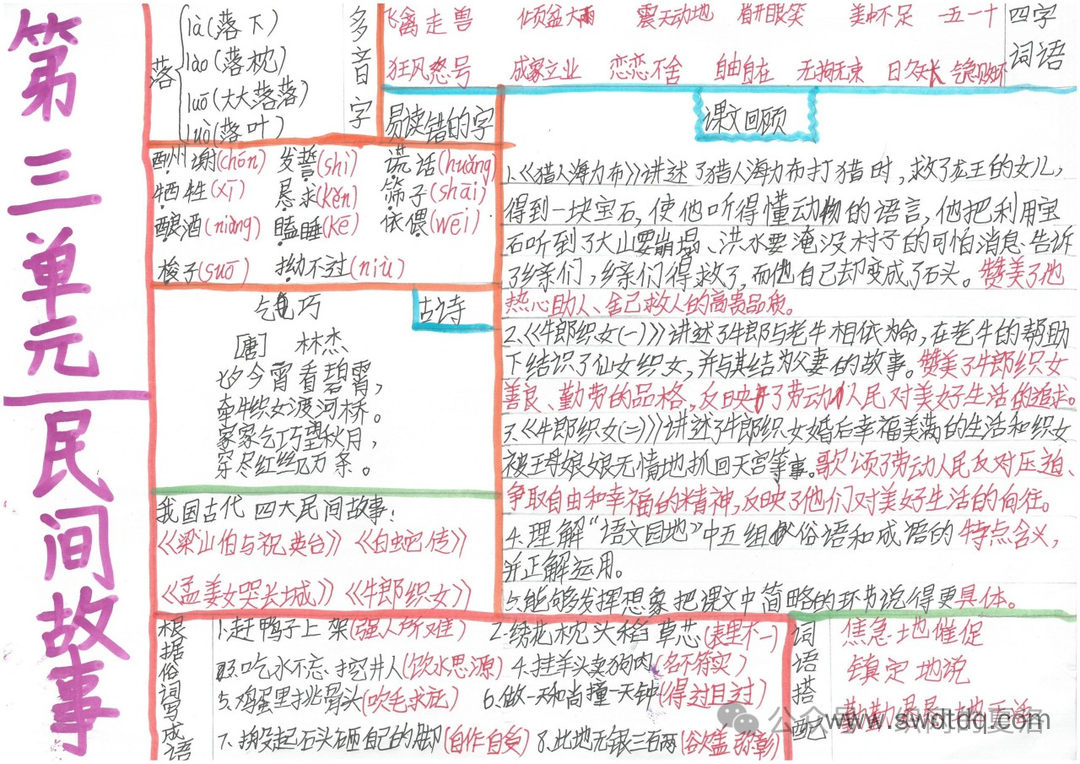 第三单元
民间故事
落
là(落下)
lào(落枕)
luō(大大落落)
luò(落叶)
多音字
飞禽走兽 倾盆大雨 震天动地 眉开眼笑 美中不足 一五一十
狂风怒号 成家立业 恋恋不舍 自由自在 无拘无束 日久天长
四字词语
易读错的字
酬谢(chóu) 发誓(shì) 谎话(huǎng)
牺牲(xī) 恳求(kěn) 筛子(shāi)
酿酒(niàng) 瞌睡(kē) 依偎(wēi)
梭子(suō) 拗不过(niù)
古诗
乞巧
[唐] 林杰
七夕今宵看碧霄,
牵牛织女渡河桥。
家家乞巧望秋月,
穿尽红丝几万条。
我国古代四大民间故事:
《梁山伯与祝英台》《白蛇传》
《孟姜女哭长城》《牛郎织女》
课文回顾
1.《猎人海力布》讲述了猎人海力布打猎时,救了龙王的女儿,
得到一块宝石,使他听得懂动物的语言,他把利用宝
石听到了大山要崩塌、洪水要淹没村子的可怕消息告诉
了乡亲们,乡亲们得救了,而他自己却变成了石头。赞美了他
热心助人、舍己救人的高贵品质。
2.《牛郎织女(一)》讲述了牛郎与老牛相依为命,在老牛的帮助
下结识了仙女织女,并与其结为夫妻的故事。赞美了牛郎织女
善良、勤劳的品格,反映了劳动人民对美好生活的追求。
3.《牛郎织女(二)》讲述了牛郎织女婚后幸福美满的生活和织女
被王母娘娘无情地抓回天宫等事。歌颂了劳动人民反对压迫、
争取自由和幸福的精神,反映了他们对美好生活的向往。
4.理解“语文园地”中五组俗语和成语的特点含义,
并正解运用。
5.能够发挥想象把课文中简略的环节说得更具体。
根据俗词写成语
1.赶鸭子上架(强人所难) 2.绣花枕头稻草芯(表里不一)
3.吃水不忘挖井人(饮水思源) 4.挂羊头卖狗肉(名不符实)
5.鸡蛋里挑骨头(吹毛求疵) 6.做一天和尚撞一天钟(得过且过)
7.搬起石头砸自己的脚(自作自受) 8.此地无银三百两(欲盖弥彰)
词语搭配
焦急地催促
镇定地说
公众号
www.swdtdq.com